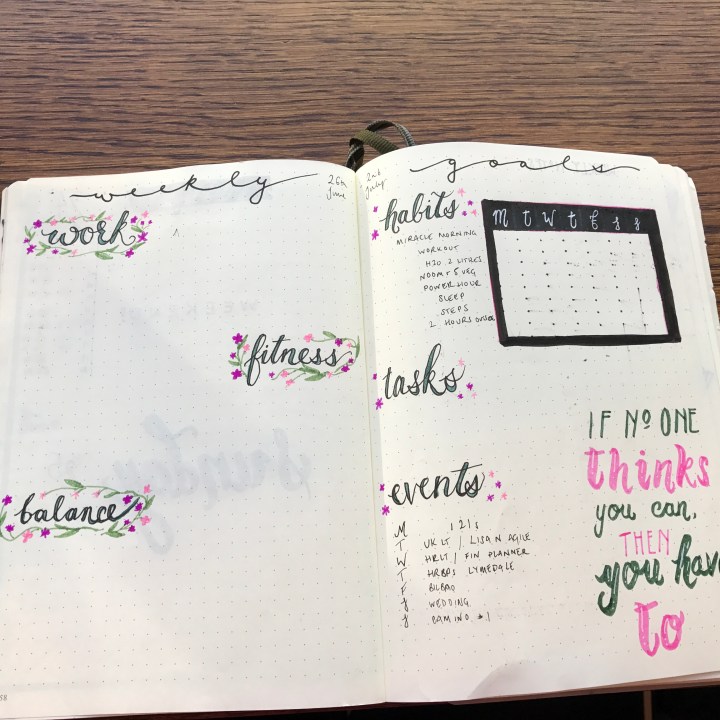 weekly
26th
June
work
fitness
balance
58
goals
2nd
July
habits
MIRACLE MORNING
WORKOUT
H2O 2 LITRES
NOOM + 5 VEG
POWER HOUR
SLEEP
STEPS
2 HOURS
M T W T F S S
tasks
events
M 121s
T UKLT / LISA N AGILE
W HRLT / FIN PLANNER
T HRBPS LYMEDALE
F BILBAO
S WEDDING
S CAMINO
IF No ONE
thinks
you can,
THEN
you have
to